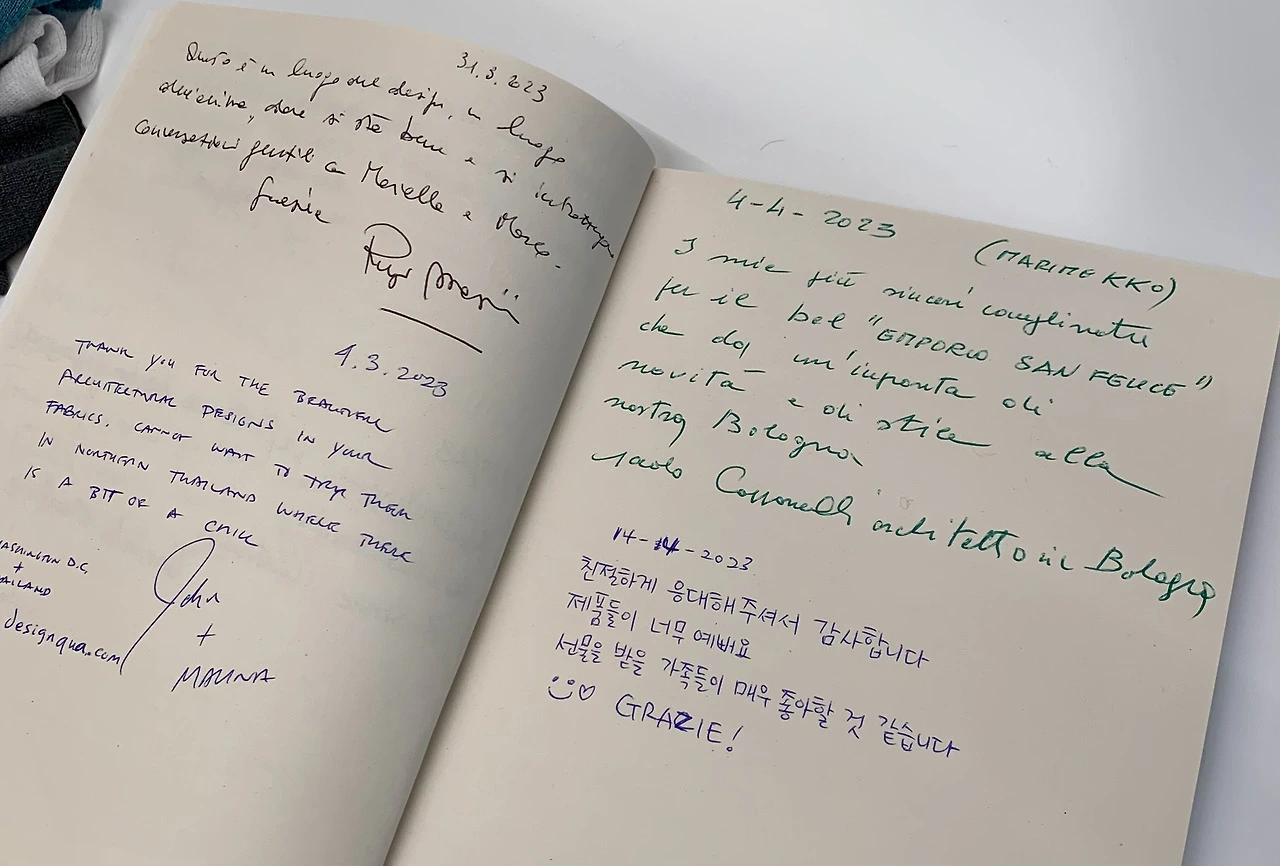 31.3.2023
Questo è un luogo del design, un luogo
dove si sta bene e si
conversazioni gentili
Grazie
4.3.2023
THANK YOU FOR THE BEAUTIFUL
ARCHITECTURAL DESIGNS IN YOUR
FABRICS. CANNOT WAIT TO TRY THEM
IN NORTHERN THAILAND WHERE THERE
IS A BIT OF A CHILL
WASHINGTON D.C.
+
THAILAND
designqua.com
John
+
MALINA
4-4-2023 (MARIMEKKO)
I miei più sinceri complimenti
per il bel "EMPORIO SAN FELICE"
che dà un'impronta di
novità e di stile alla
nostra Bologna
Paolo architetto in Bologna
14-4-2023
친절하게 응대해주셔서 감사합니다
제품들이 너무 예뻐요
선물을 받을 가족들이 매우 좋아할 것 같습니다
GRAZIE!